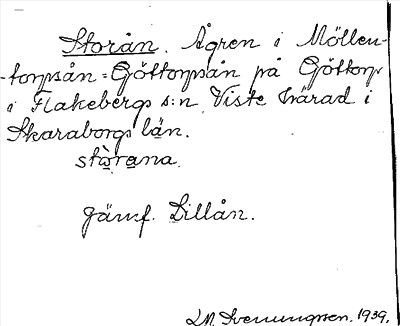 Storån. Ågren i Möllen-
-torpsån = Göttorpsån på Göttorp
i Flakebergs s:n, Viste härad i
Skaraborgs län.
stòrana.
Jämf. Lillån.
1939.